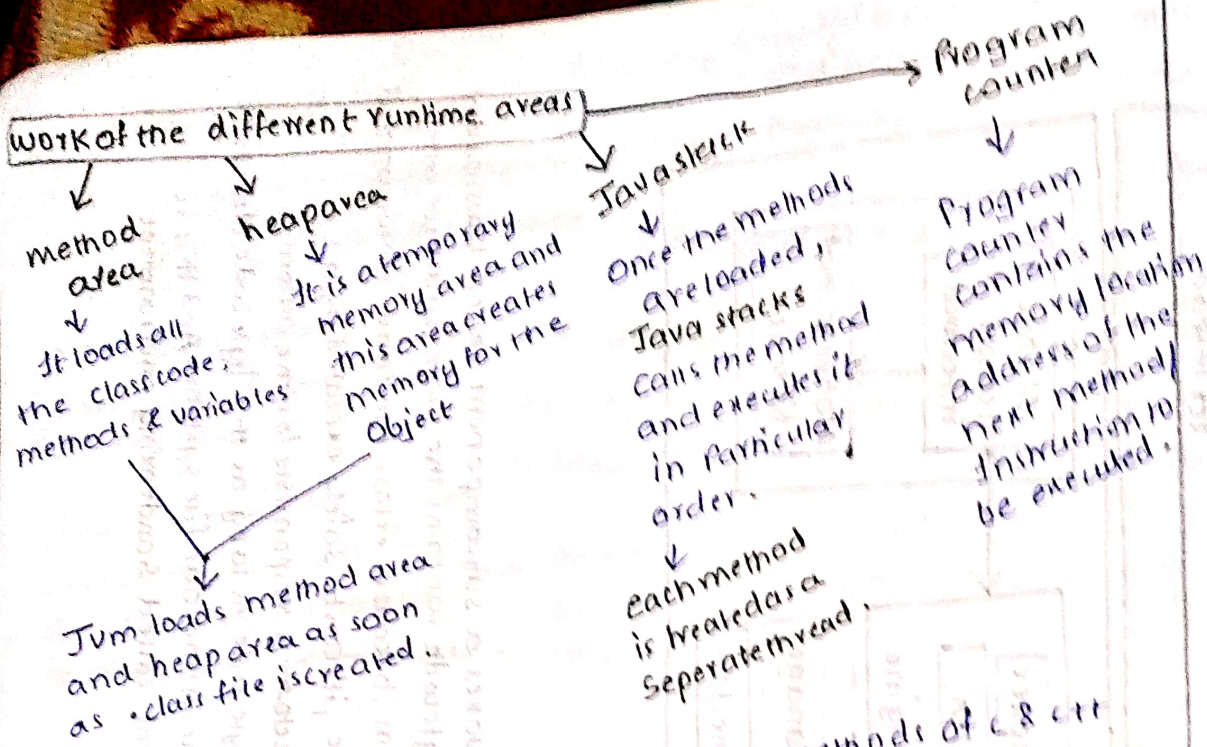 work of the different runtime areas
method
area
It loads all
the class code,
methods & variables
heap area
It is a temporary
memory area and
this area creates
memory for the
object
JVM loads method area
and heap area as soon
as .class file is created.
Java stack
once the methods
are loaded,
Java stacks
calls the method
and executes it
in particular
order.
each method
is treated as a
seperate thread.
Program
counter
Program
counter
contains the
memory location
address of the
next method/
Instruction to
be executed.
of c & c++